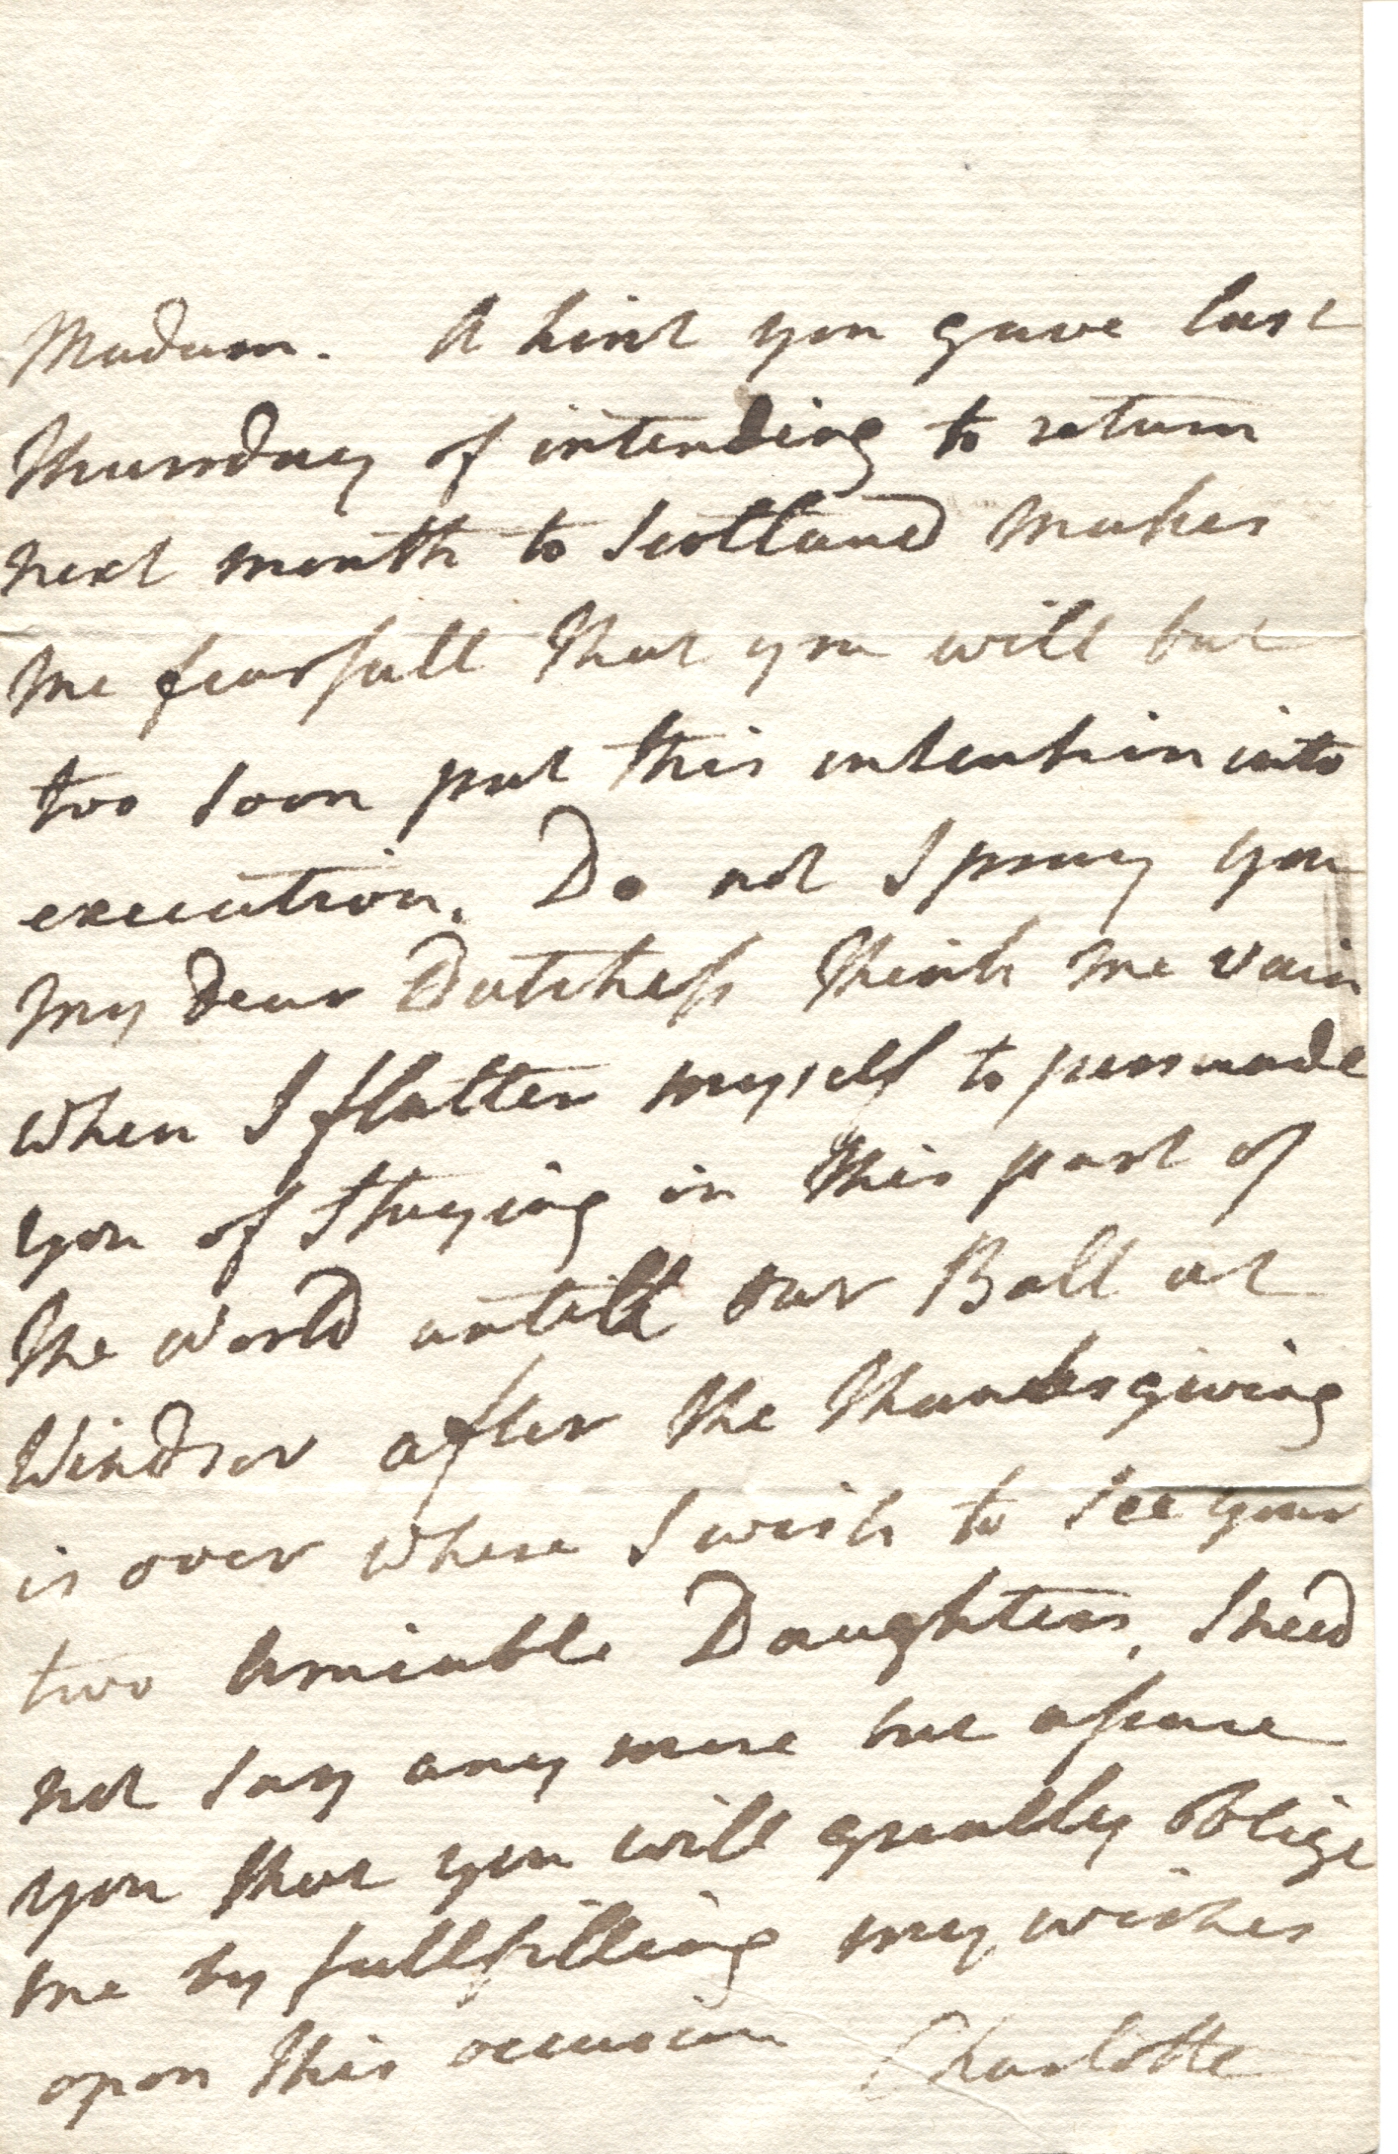 Madam. A hint you gave last
Thursday of intending to return
next month to Scotland makes
me fearfull that you will but
too soon put this intention into
execution. Do not I pray you
my dear Dutchess think me vain
when I flatter myself to persuade
you of staying in this part of
the world untill our Ball at
Windsor after the Thanksgiving
is over where I wish to see your
two Amiable Daughters, I need
not say any more but assure
you that you will greatly oblige
me by fullfilling my wishes
upon this occasion Charlotte